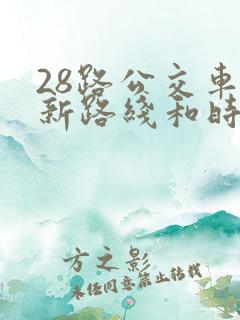 28路公交车
新路线和时
方之影
未经同意禁止转载